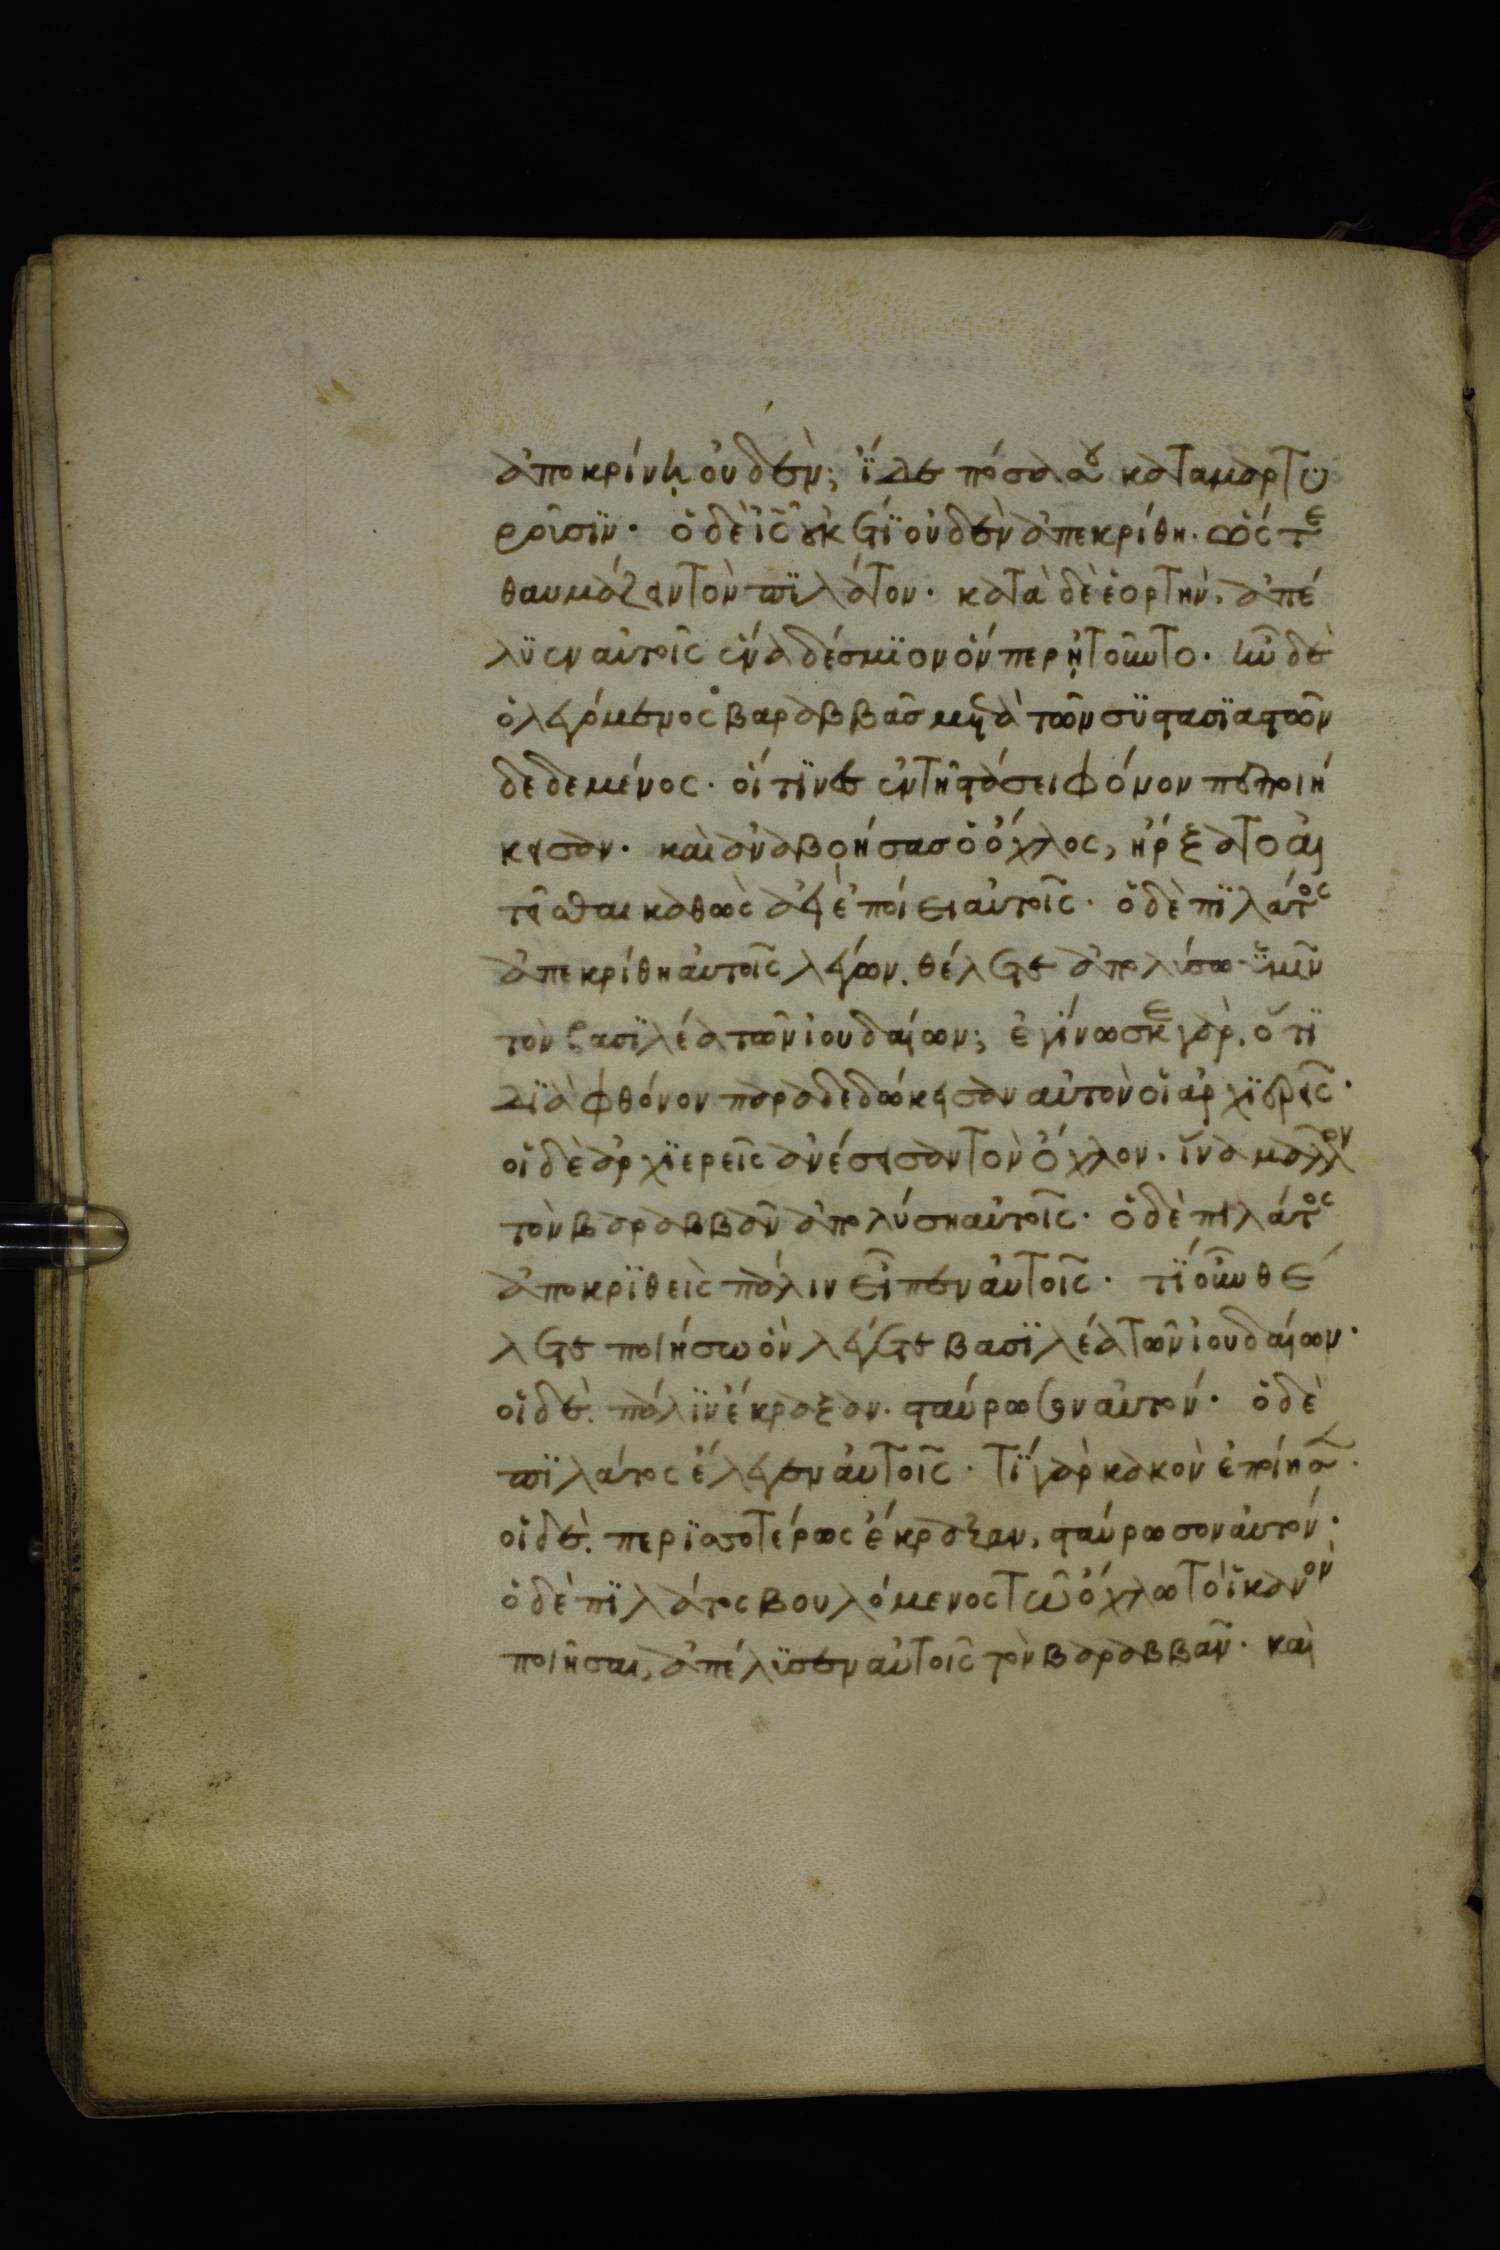 ἀποκρίνῃ οὐδὲν; ἴδε πόσα σου καταμαρτυ
ροῦσϊν· ὁ δὲ ις οὐκ ἔτϊ οὐδὲν ἀπεκρίθη. ὥστε
θαυμάζειν τὸν πϊλάτον· κατὰ δὲ ἑορτὴν, ἀπέ
λϋεν αὐτοῖς ἕνα δέσμϊον ὅνπερ ἠτοῦντο· ἦν δὲ
ὁ λεγόμενος βαραββᾶς μετὰ τῶν συστασϊαστῶν
δεδεμένος· οἵτϊνες ἐν τῆ στάσει φόνον πεποιή
κεισαν· καὶ ἀναβοήσας ὁ ὄχλος, ἤρξατο αἰ
τεῖσθαι καθὼς ἀεὶ ἐποίει αὐτοῖς· ὁ δὲ πϊλάτος
ἀπεκρίθη αὐτοῖς λέγων. θέλετε ἀπολύσω ὑμῖν
τὸν βασϊλέα τῶν ἰουδαίων; ἐγίνωσκε γὰρ, ὅτϊ
δϊὰ φθόνον παραδεδώκεισαν αὐτὸν οἱ ἀρχϊερεῖς·
οἱ δὲ ἀρχϊερεῖς ἀνέσεισαν τὸν ὄχλον. ἵνα μᾶλλον
τὸν βαραββᾶν ἀπολύση αὐτοῖς· ὁ δὲ πιλάτος
ἀποκρϊθεὶς πάλιν εἶπεν αὐτοῖς· τϊ οὖν θέ
λετε ποιήσω ὃν λέγετε βασϊλέα τῶν ἰουδαίων·
οἱ δὲ. πάλϊν ἔκραξαν. σταύρωσον αὐτόν· ὁ δὲ
πϊλάτος ἔλεγεν αὐτοῖς· τϊ γὰρ κακὸν ἐποίησεν·
οἱ δὲ. περϊσσοτέρως ἔκραξαν, σταύρωσον αὐτόν·
ὁ δὲ πϊλάτος βουλόμενος τῶ ὄχλω τὸ ἱκανὸν
ποιῆσαι, ἀπέλϋσεν αὐτοῖς τὸν βαραββᾶν· καὶ